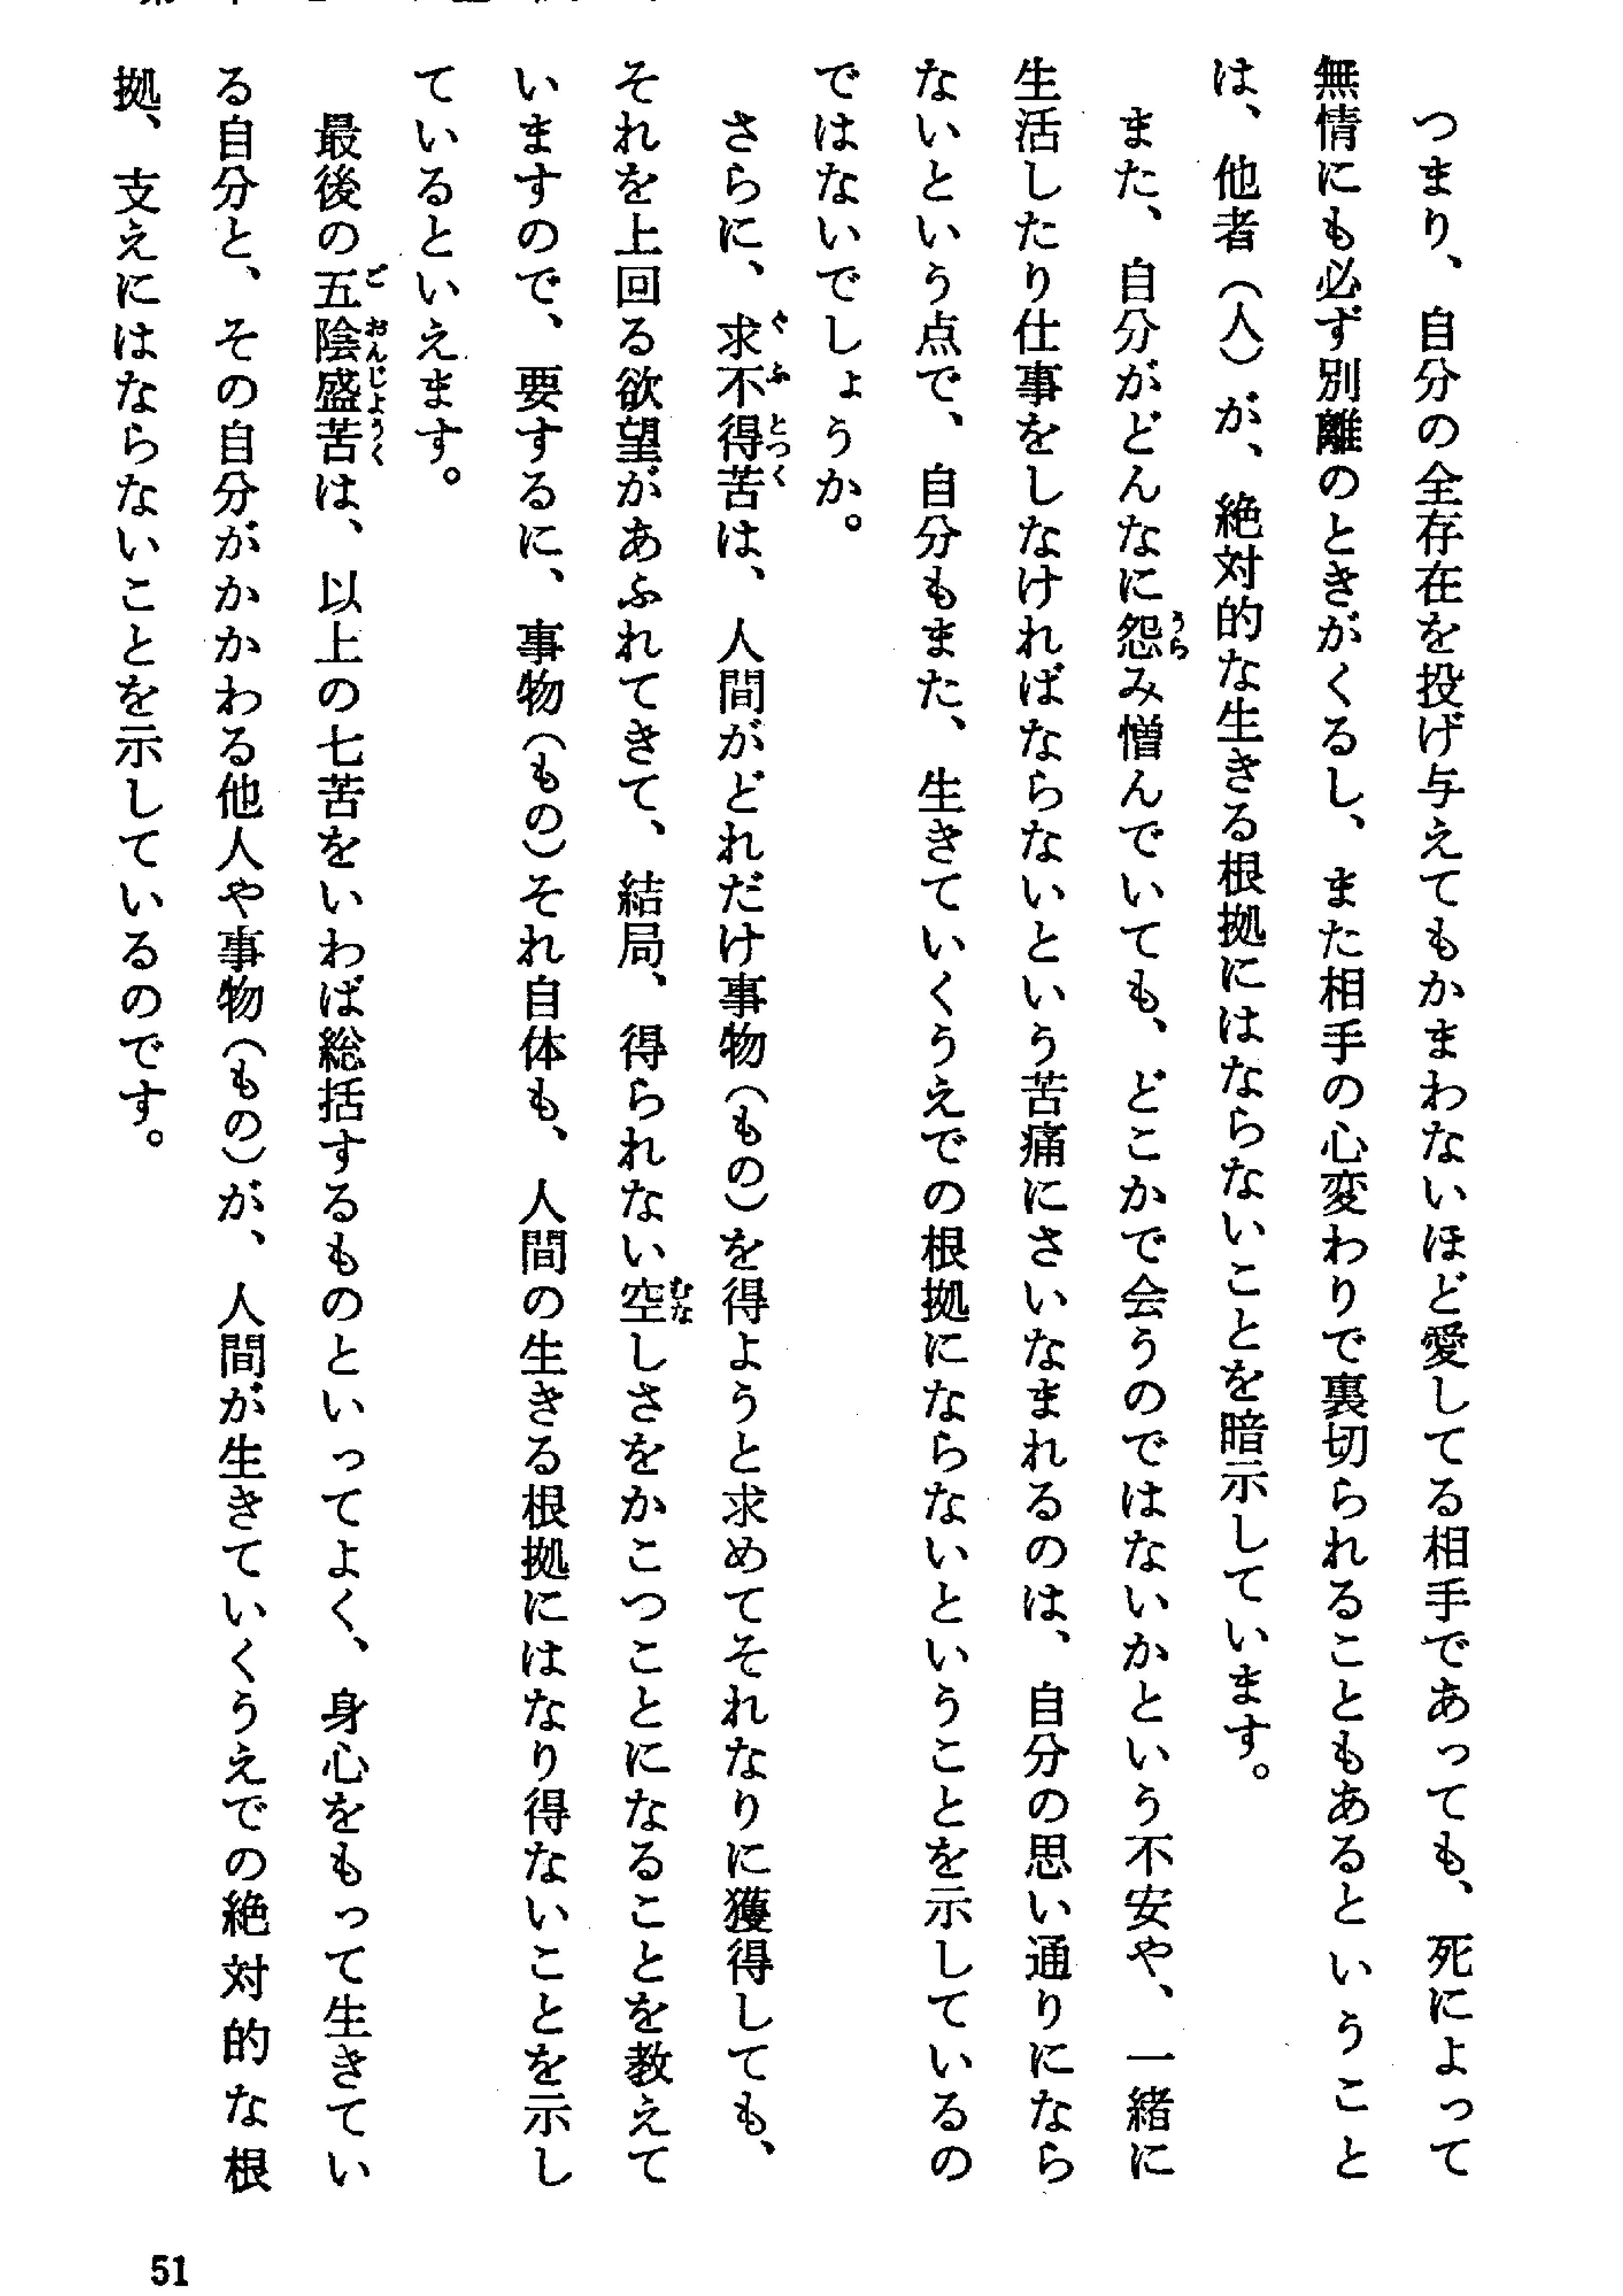 つまり、自分の全存在を投げ与えてもかまわないほど愛してる相手であっても、死によって
無情にも必ず別離のときがくるし、また相手の心変わりで裏切られることもあるということ
は、他者（人）が、絶対的な生きる根拠にはならないことを暗示しています。
また、自分がどんなに怨み憎んでいても、どこかで会うのではないかという不安や、一緒に
生活したり仕事をしなければならないという苦痛にさいなまれるのは、自分の思い通りになら
ないという点で、自分もまた、生きていくうえでの根拠にならないということを示しているの
ではないでしょうか。
さらに、求不得苦は、人間がどれだけ事物（もの）を得ようと求めてそれなりに獲得しても、
それを上回る欲望があふれてきて、結局、得られない空しさをかこつことになることを教えて
いますので、要するに、事物（もの）それ自体も、人間の生きる根拠にはなり得ないことを示し
ているといえます。
最後の五陰盛苦は、以上の七苦をいわば総括するものといってよく、身心をもって生きてい
る自分と、その自分がかかわる他人や事物（もの）が、人間が生きていくうえでの絶対的な根
拠、支えにはならないことを示しているのです。
51